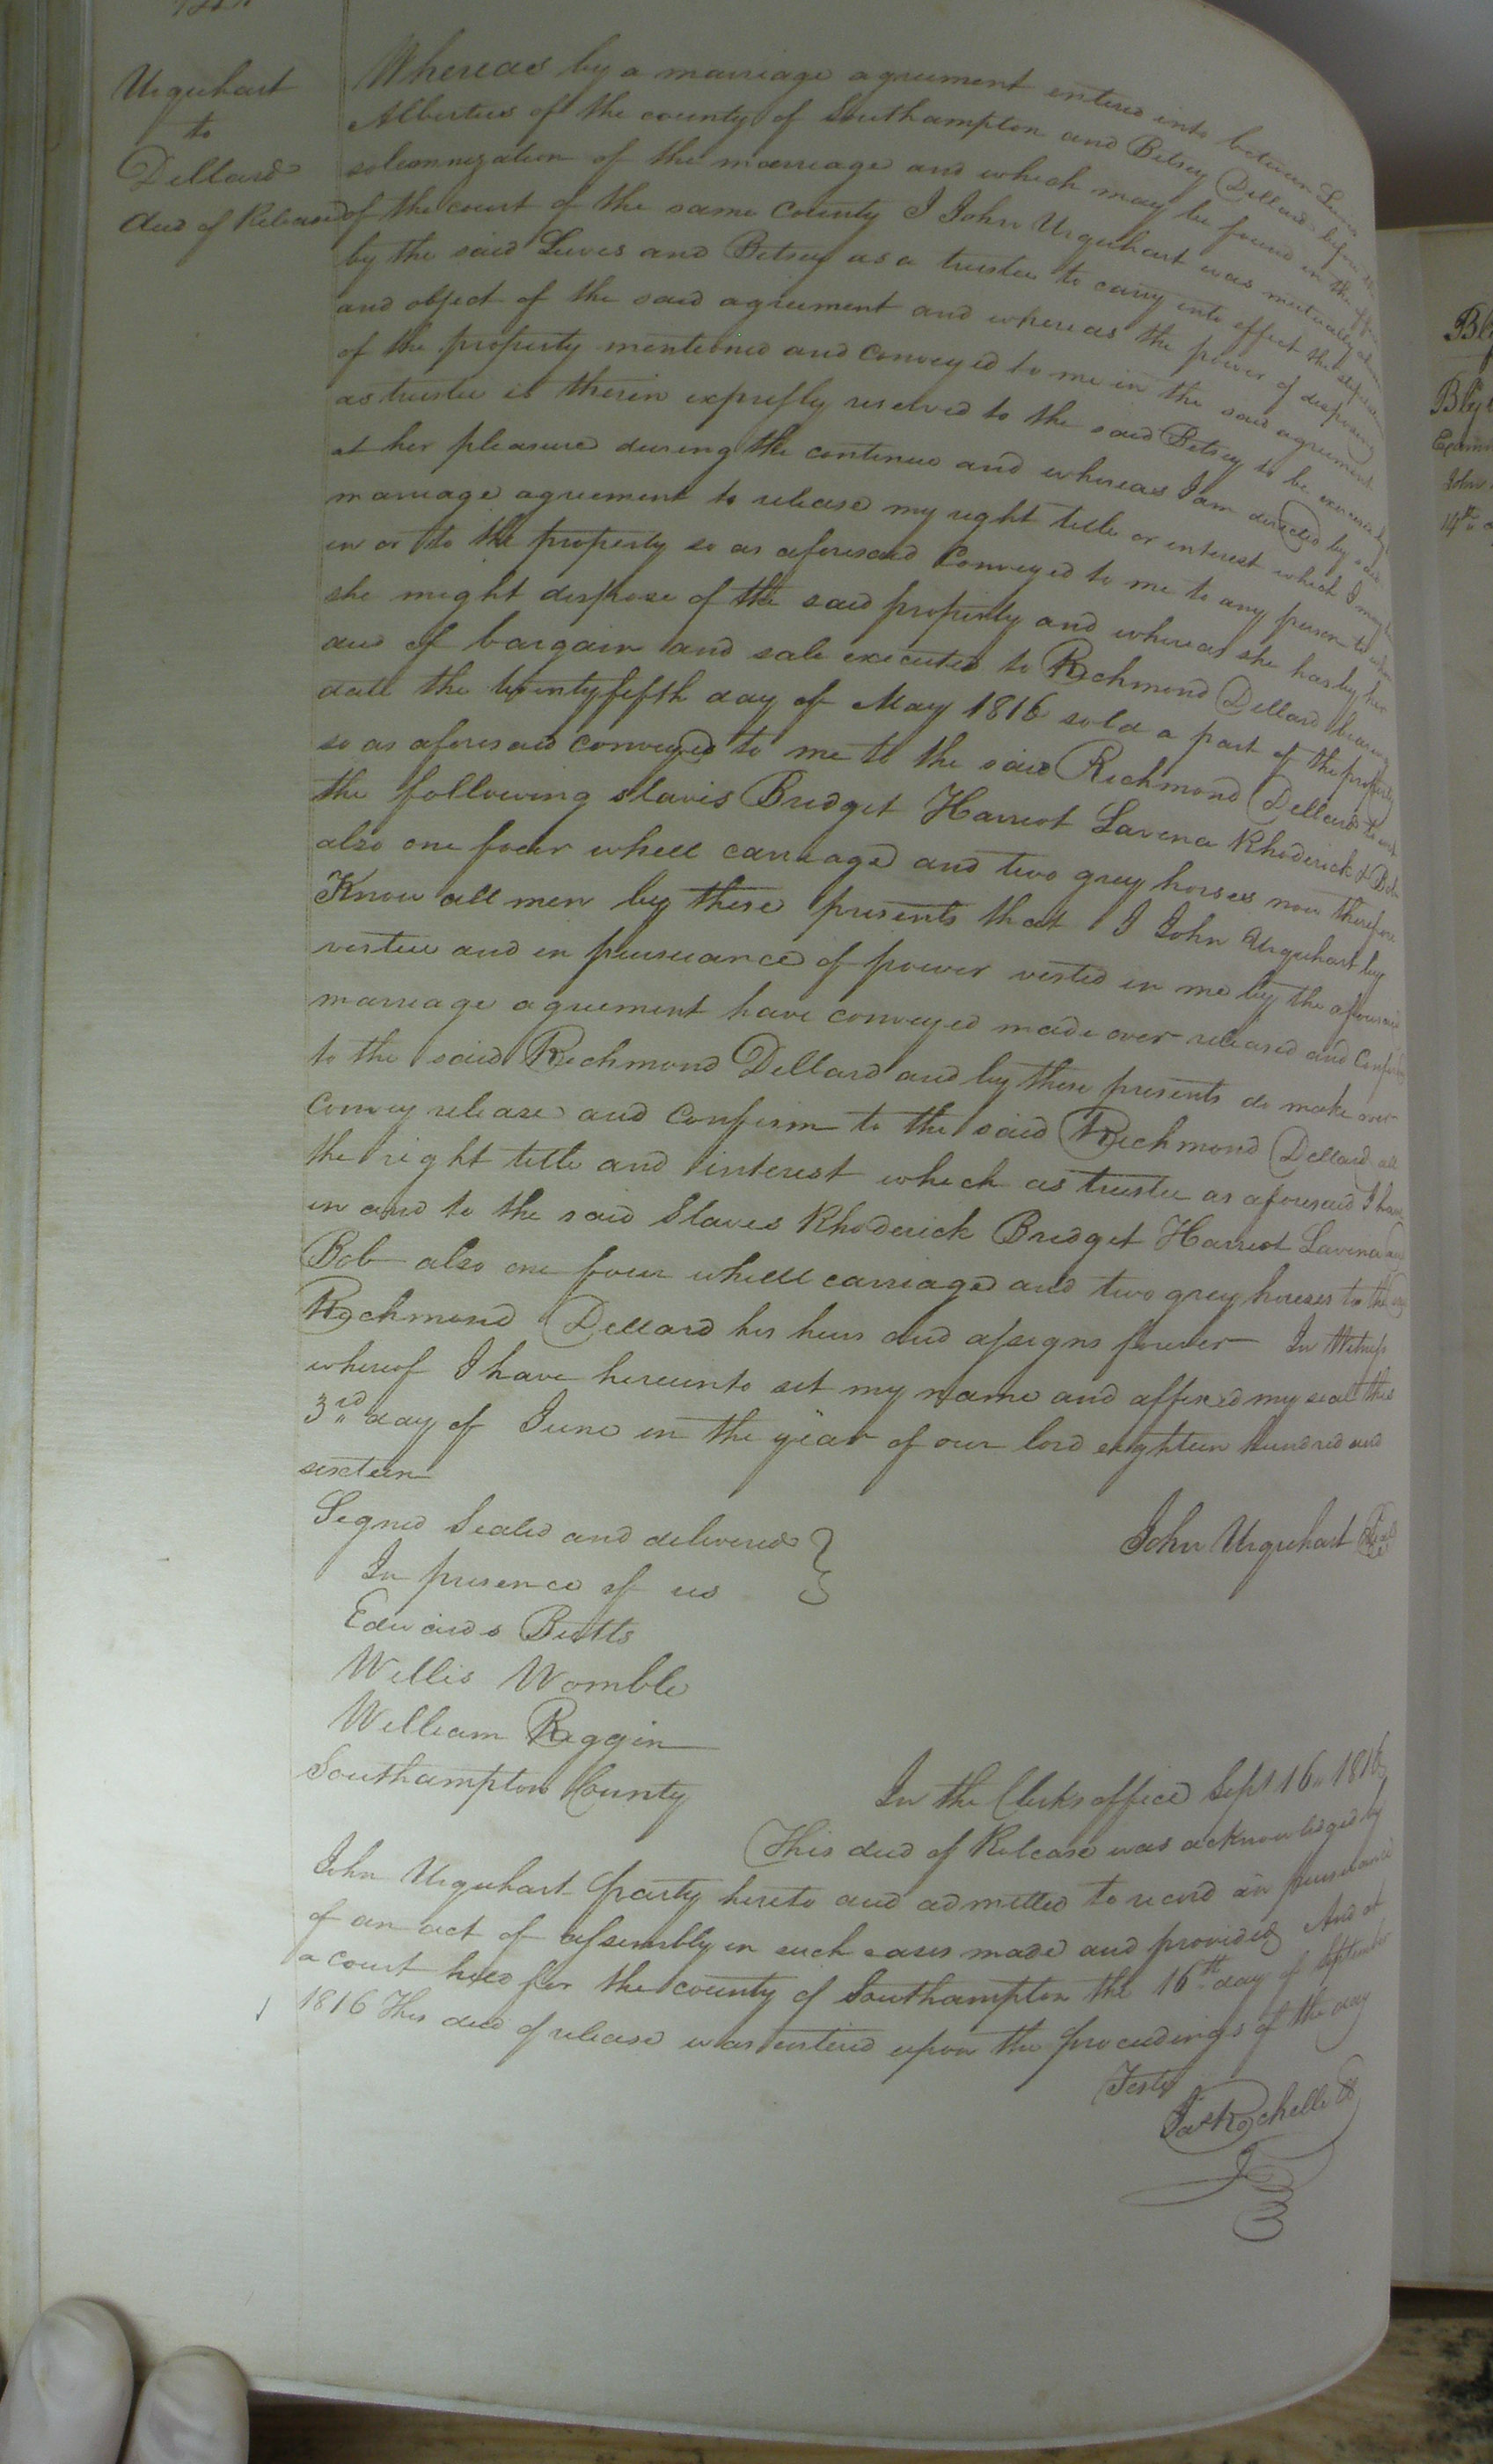 Urquhart
to
Dillard
deed of Release
Whereas by a marriage agreement entered into between Lewis
Albertus of the county of Southampton and Betsey Dillard before
solemnization of the marriage and which may be found in the office
of the court of the same County I John Urquhart was mutually
by the said Lewes and Betsey as a trustee to carry into effect the
and object of the said agreement and whereas the power of disposing
of the property mentioned and conveyed to me in the said agreement
as trustee is therein expressly reserved to the said Betsey to be
at her pleasure during the continue and whereas I am directed by said
marriage agreement to release my right title or interest which I may
in or to the property so as aforesaid Conveyed to me to any person to
she might dispose of the said property and whereas she has by her
deed of bargain and sale executed to Richmond Dillard bearing
date the twenty fifth day of May 1816 sold a part of the property
so as aforesaid conveyed to me to the said Richmond Dillard to wit
the following slaves Bridget Harriot Lavena Rhoderick & Bob
also one four wheel carriage and two grey horses now therefore
Know all men by these presents that I John Urquhart by
virtue and in pursuance of power vested in me by the aforesaid
marriage agreement have conveyed made over released and
to the said Richmond Dillard and by these presents do make over
convey release and confirm to the said Richmond Dillard all
the right title and interest which as trustee as aforesaid I have
in and to the said Slaves Rhoderick Bridget Harriot Lavena and
Bob also one four wheell carriage and two grey horses to the
Richmond Dillard his heirs and assigns forever In Witness
whereof I have hereunto set my name and affixed my seal this
3rd day of June in the year of our lord eighteen hundred and
sixteen
Signed Sealed and delivered
John Urquhart Seal
In presence of us
Edwards Butts
Willis Womble
William Riggin
Southampton County
In the Clerks office Sept 16 1816
This deed of Release was acknowledged by
John Urquhart party hereto and admitted to record in pursuance
of an act of assembly in such cases made and provided And at
a court held for the county of Southampton the 16th day of September
1816 This deed of release was entered upon the proceedings of the day
Teste
Jas Rochelle
Bly
John
14th